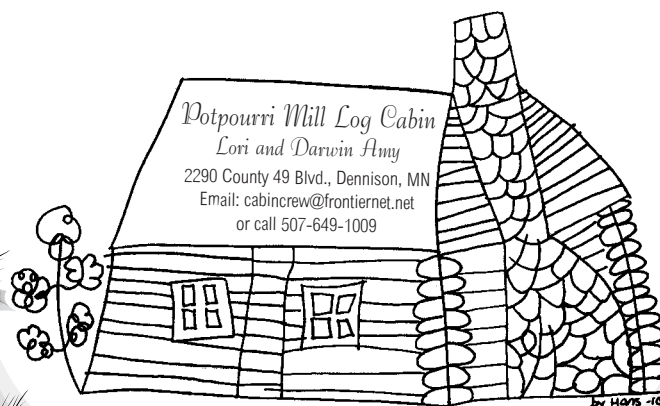 Potpourri Mill Log Cabin
Lori and Darwin Amy
2290 County 49 Blvd., Dennison, MN
Email: cabincrew@frontiernet.net
or call 507-649-1009
by HANS -10